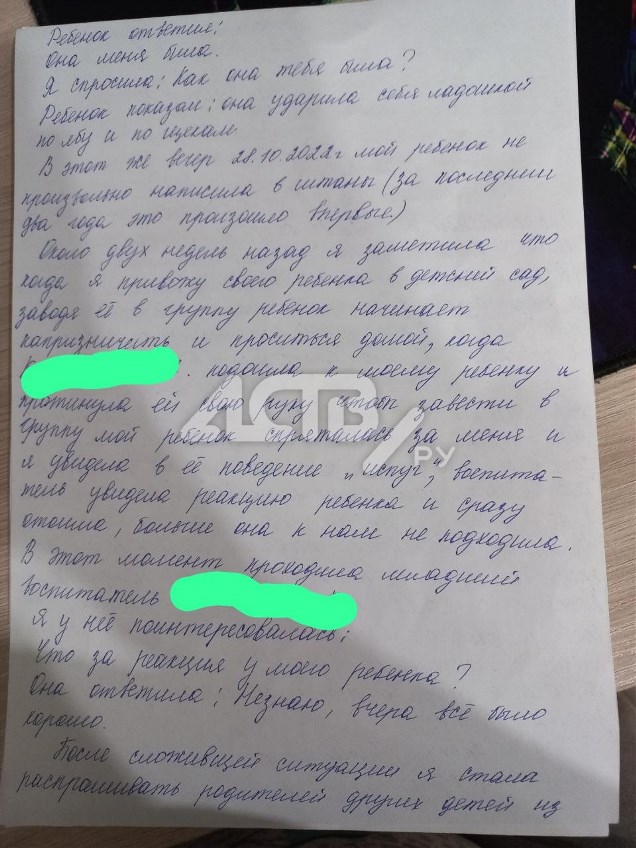 Ребенок ответил:
Она меня била.
Я спросила: Как она тебя била?
Ребенок показал: она ударила себя ладошкой
по лбу и по щекам
В этот же вечер 28.10.2022г мой ребенок не
произвольно написила в штаны (за последнии
два года это произошло впервые.)
Около двух недель назад я заметила что
когда я привожу своего ребенка в детский сад,
заводя её в группу ребенок начинает
капризничить и проситься домой, когда
К . подошла к моему ребенку и
протинула ей свою руку чтобы завести в
группу мой ребенок спряталось за меня и
я увидела в её поведение „испуг", воспита-
тель увидела реакцию ребенка и сразу
отошла, больше она к нам не подходила.
АСТВ.РУ
В этот момент проходила младший
воспитатель
Я у неё поинтересовалась:
Что за реакция у моего ребенка?
Она ответила: Незнаю, вчера всё было
хорошо.
После сложившей ситуации я стала
распрашивать родителей других детей из